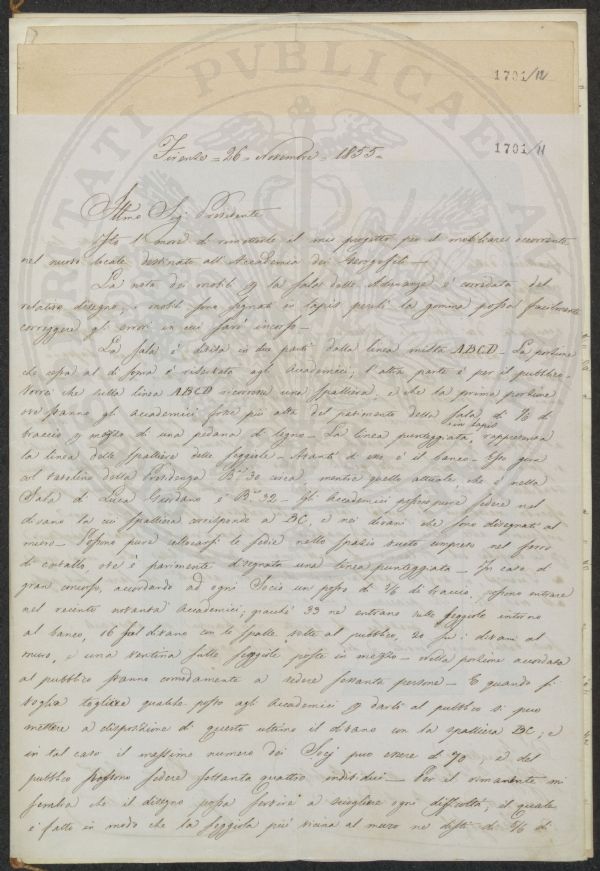 1701/12
1701/11
PROSPERITATI PVBLICAE AV
Firenze = 26 = Novembre = 1855 =
Illmo Sig: Presidente
Ho l'onore di rimetterle il mio progetto per il mobiliare occorrente
nel nuovo locale destinato all'Accademia dei Georgofili —
La nota dei mobili p la Sala delle Adunanze è corredata del
relativo disegno, i mobili sono segnati in lapis perchè la gomma possa facilmente
correggere gli errori in cui sarò incorso —
La Sala è divisa in due parti dalla linea mista ABCD — La porzione
che resta al di sopra è riserbata agli Accademici; l'altra parte è per il pubblico —
Vorrei che sulla linea ABCD ricorresse una spalliera, e che la prima porzione
ove stanno gli accademici fosse più alta del pavimento della Sala, di 1/6 di
braccio p mezzo di una pedana di legno — La linea punteggiata, rappresenta
in lapis
la linea delle spalliere delle seggiole — Avanti di esso è il banco — Esso gira
col tavolino della Presidenza B.a 30 circa, mentre quello attuale che è nella
Sala di Luca Giordano è B.a 32 — Gli Accademici possono pure sedere nel
divano la cui spalliera corrisponde a BC, e nei divani che sono disegnati al
muro — Possono pure collocarsi le sedie nello spazio vuoto compreso nel ferro
di cavallo, ove è parimente disegnata una linea punteggiata — In caso di
gran concorso, accordando ad ogni Socio un posto di 5/6 di braccio, possono entrare
nel recinto novanta Accademici; giacchè 33 ne entrano sulle seggiole intorno
al banco, 16 sul divano con le spalle volte al pubblico, 20 su i divani al
muro, e una ventina sulle seggiole poste in mezzo — Nella porzione accordata
al pubblico stanno comodamente a sedere sessanta persone — E quando si
voglia togliere qualche posto agli Accademici p darli al pubblico si può
mettere a disposizione di questo ultimo il divano con la spalliera BC; e
in tal caso il massimo numero dei Socj può essere di 70, e del
pubblico possono sedere settanta quattro individui — Per il rimanente mi
sembra che il disegno possa servire a sciogliere ogni difficoltà, il quale
è fatto in modo che la seggiola più vicina al muro ne disti di 5/6 di